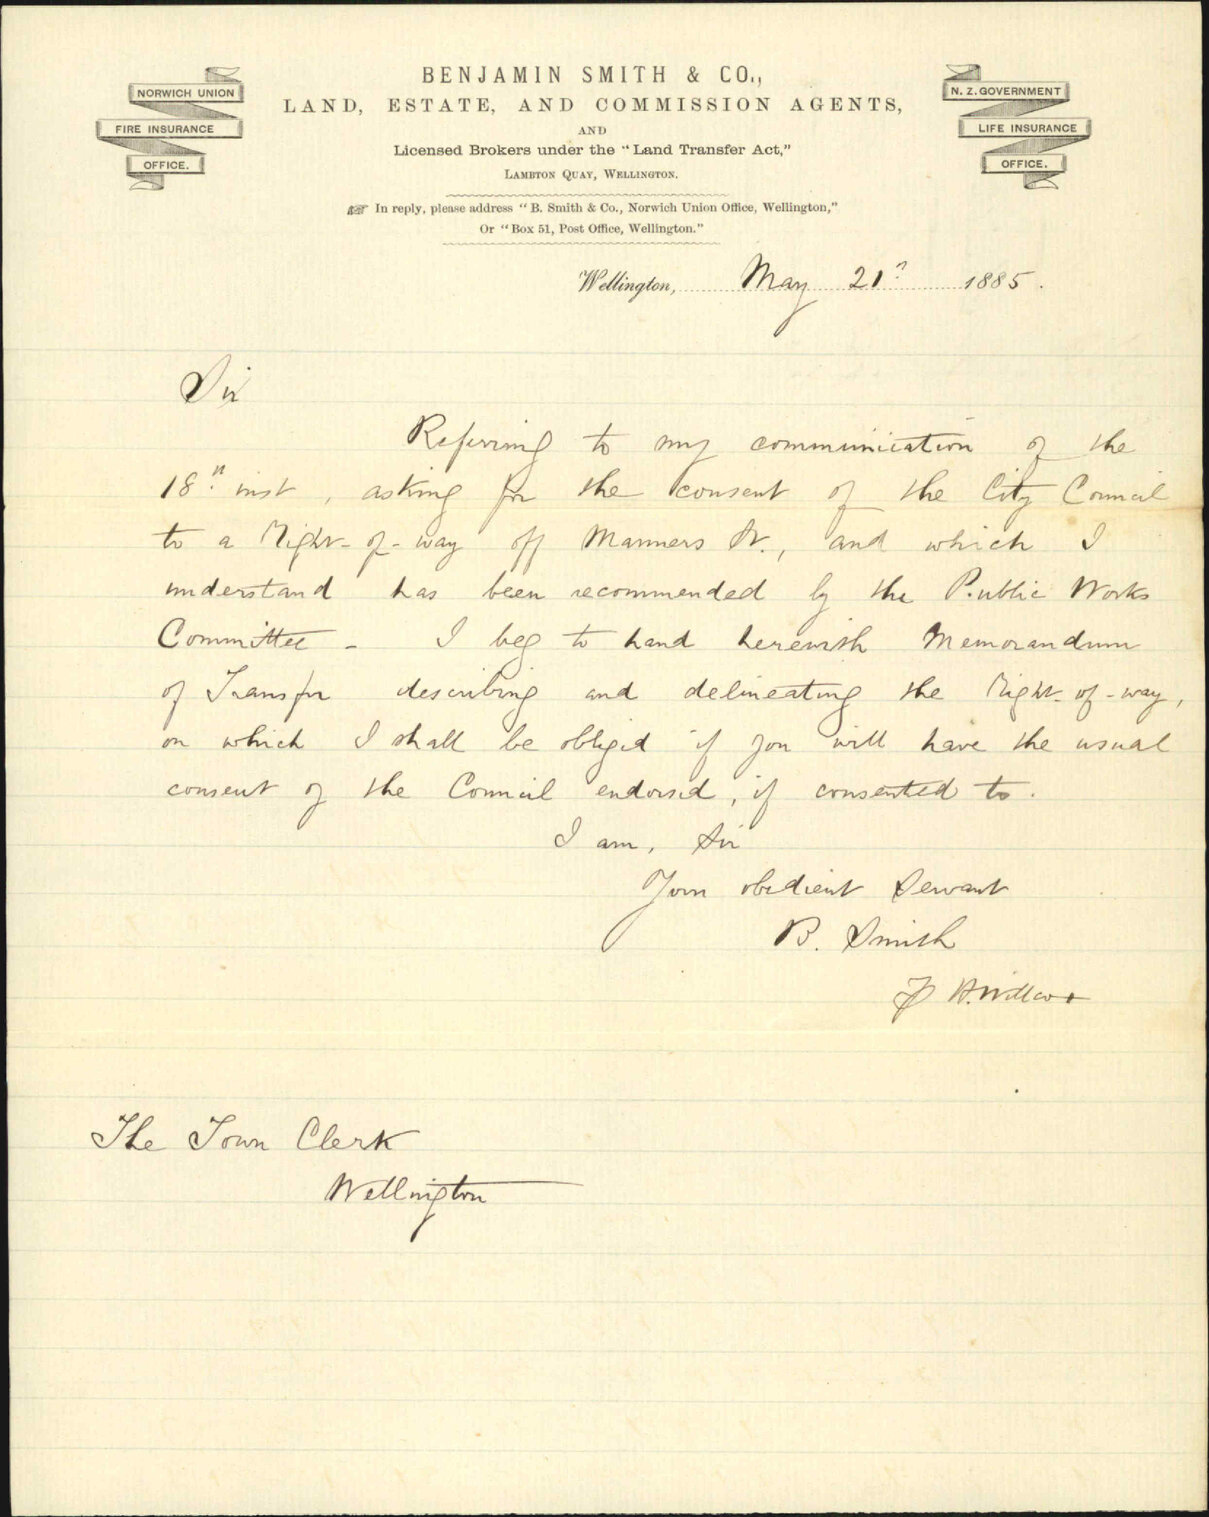 BENJAMIN SMITH & CO.,
LAND, ESTATE, AND COMMISSION AGENTS,
AND
Licensed Brokers under the "Land Transfer Act,"
LAMBTON QUAY, WELLINGTON.
NORWICH UNION
FIRE INSURANCE
OFFICE.
N. Z. GOVERNMENT
LIFE INSURANCE
OFFICE.
☞ In reply, please address "B. Smith & Co., Norwich Union Office, Wellington,"
Or "Box 51, Post Office, Wellington."
Wellington, May 21 1885.
Sir
Referring to my communication of the
18th inst, asking for the consent of the City Council
to a Right-of-way off Manners St., and which I
understand has been recommended by the Public Works
Committee - I beg to hand herewith Memorandum
of Transfer describing and delineating the Right-of-way,
on which I shall be obliged if you will have the usual
consent of the Council endorsed, if consented to.
I am, Sir
Your obedient Servant
B. Smith
The Town Clerk
Wellington